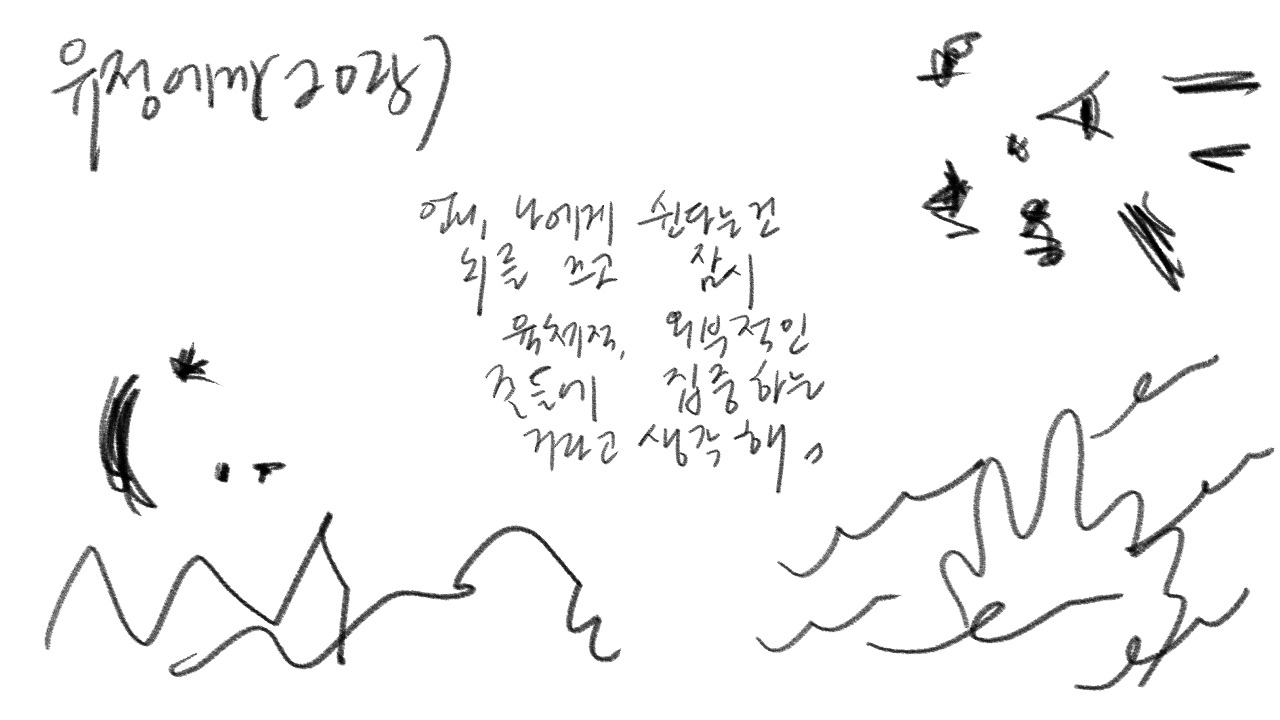 유정에빠(20랑)
언니, 나에게 쉰다는건
뇌를 끄고 잠시
육체적, 외부적인
것들에 집중하는
거라고 생각해.